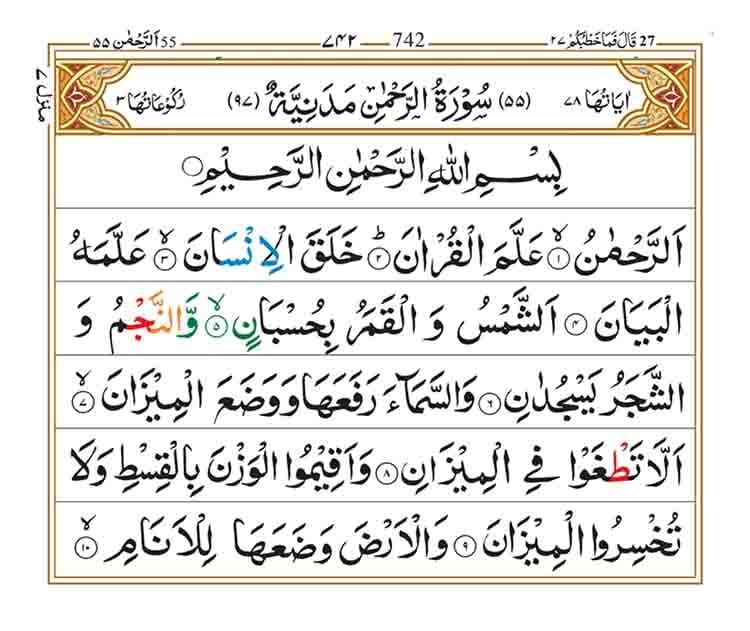 27 قَالَ فَمَا خَطْبُكُمْ ٢٧ 742 ٧٤٢ 55 اَلرَّحْمٰن ٥٥
منزل ٧
اٰيَاتُهَا ٧٨ (٥٥) سُوْرَةُ الرَّحْمٰنِ مَدَنِيَّةٌ (٩٧) رُكُوْعَاتُهَا ٣
بِسْمِ اللّٰهِ الرَّحْمٰنِ الرَّحِيْمِ
اَلرَّحْمٰنُ ۙ﴿١﴾ عَلَّمَ الْقُرْاٰنَ ؕ﴿٢﴾ خَلَقَ الْاِنْسَانَ ۙ﴿٣﴾ عَلَّمَهُ
الْبَيَانَ ﴿٤﴾ اَلشَّمْسُ وَ الْقَمَرُ بِحُسْبَانٍ ۙ﴿٥﴾ وَّالنَّجْمُ وَ
الشَّجَرُ يَسْجُدٰنِ ﴿٦﴾ وَالسَّمَآءَ رَفَعَهَا وَوَضَعَ الْمِيْزَانَ ۙ﴿٧﴾
اَلَّا تَطْغَوْا فِي الْمِيْزَانِ ﴿٨﴾ وَاَقِيْمُوا الْوَزْنَ بِالْقِسْطِ وَلَا
تُخْسِرُوا الْمِيْزَانَ ﴿٩﴾ وَالْاَرْضَ وَضَعَهَا لِلْاَنَامِ ۙ﴿١٠﴾